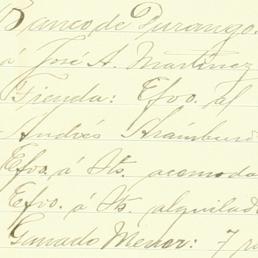 Banco de Durango.
á José A. Martinez
Tienda: Efvo. al
Andrés
Efvo. á Sts. acomoda
Efvo. á Sts. alquilad
Ganado Menor: 7